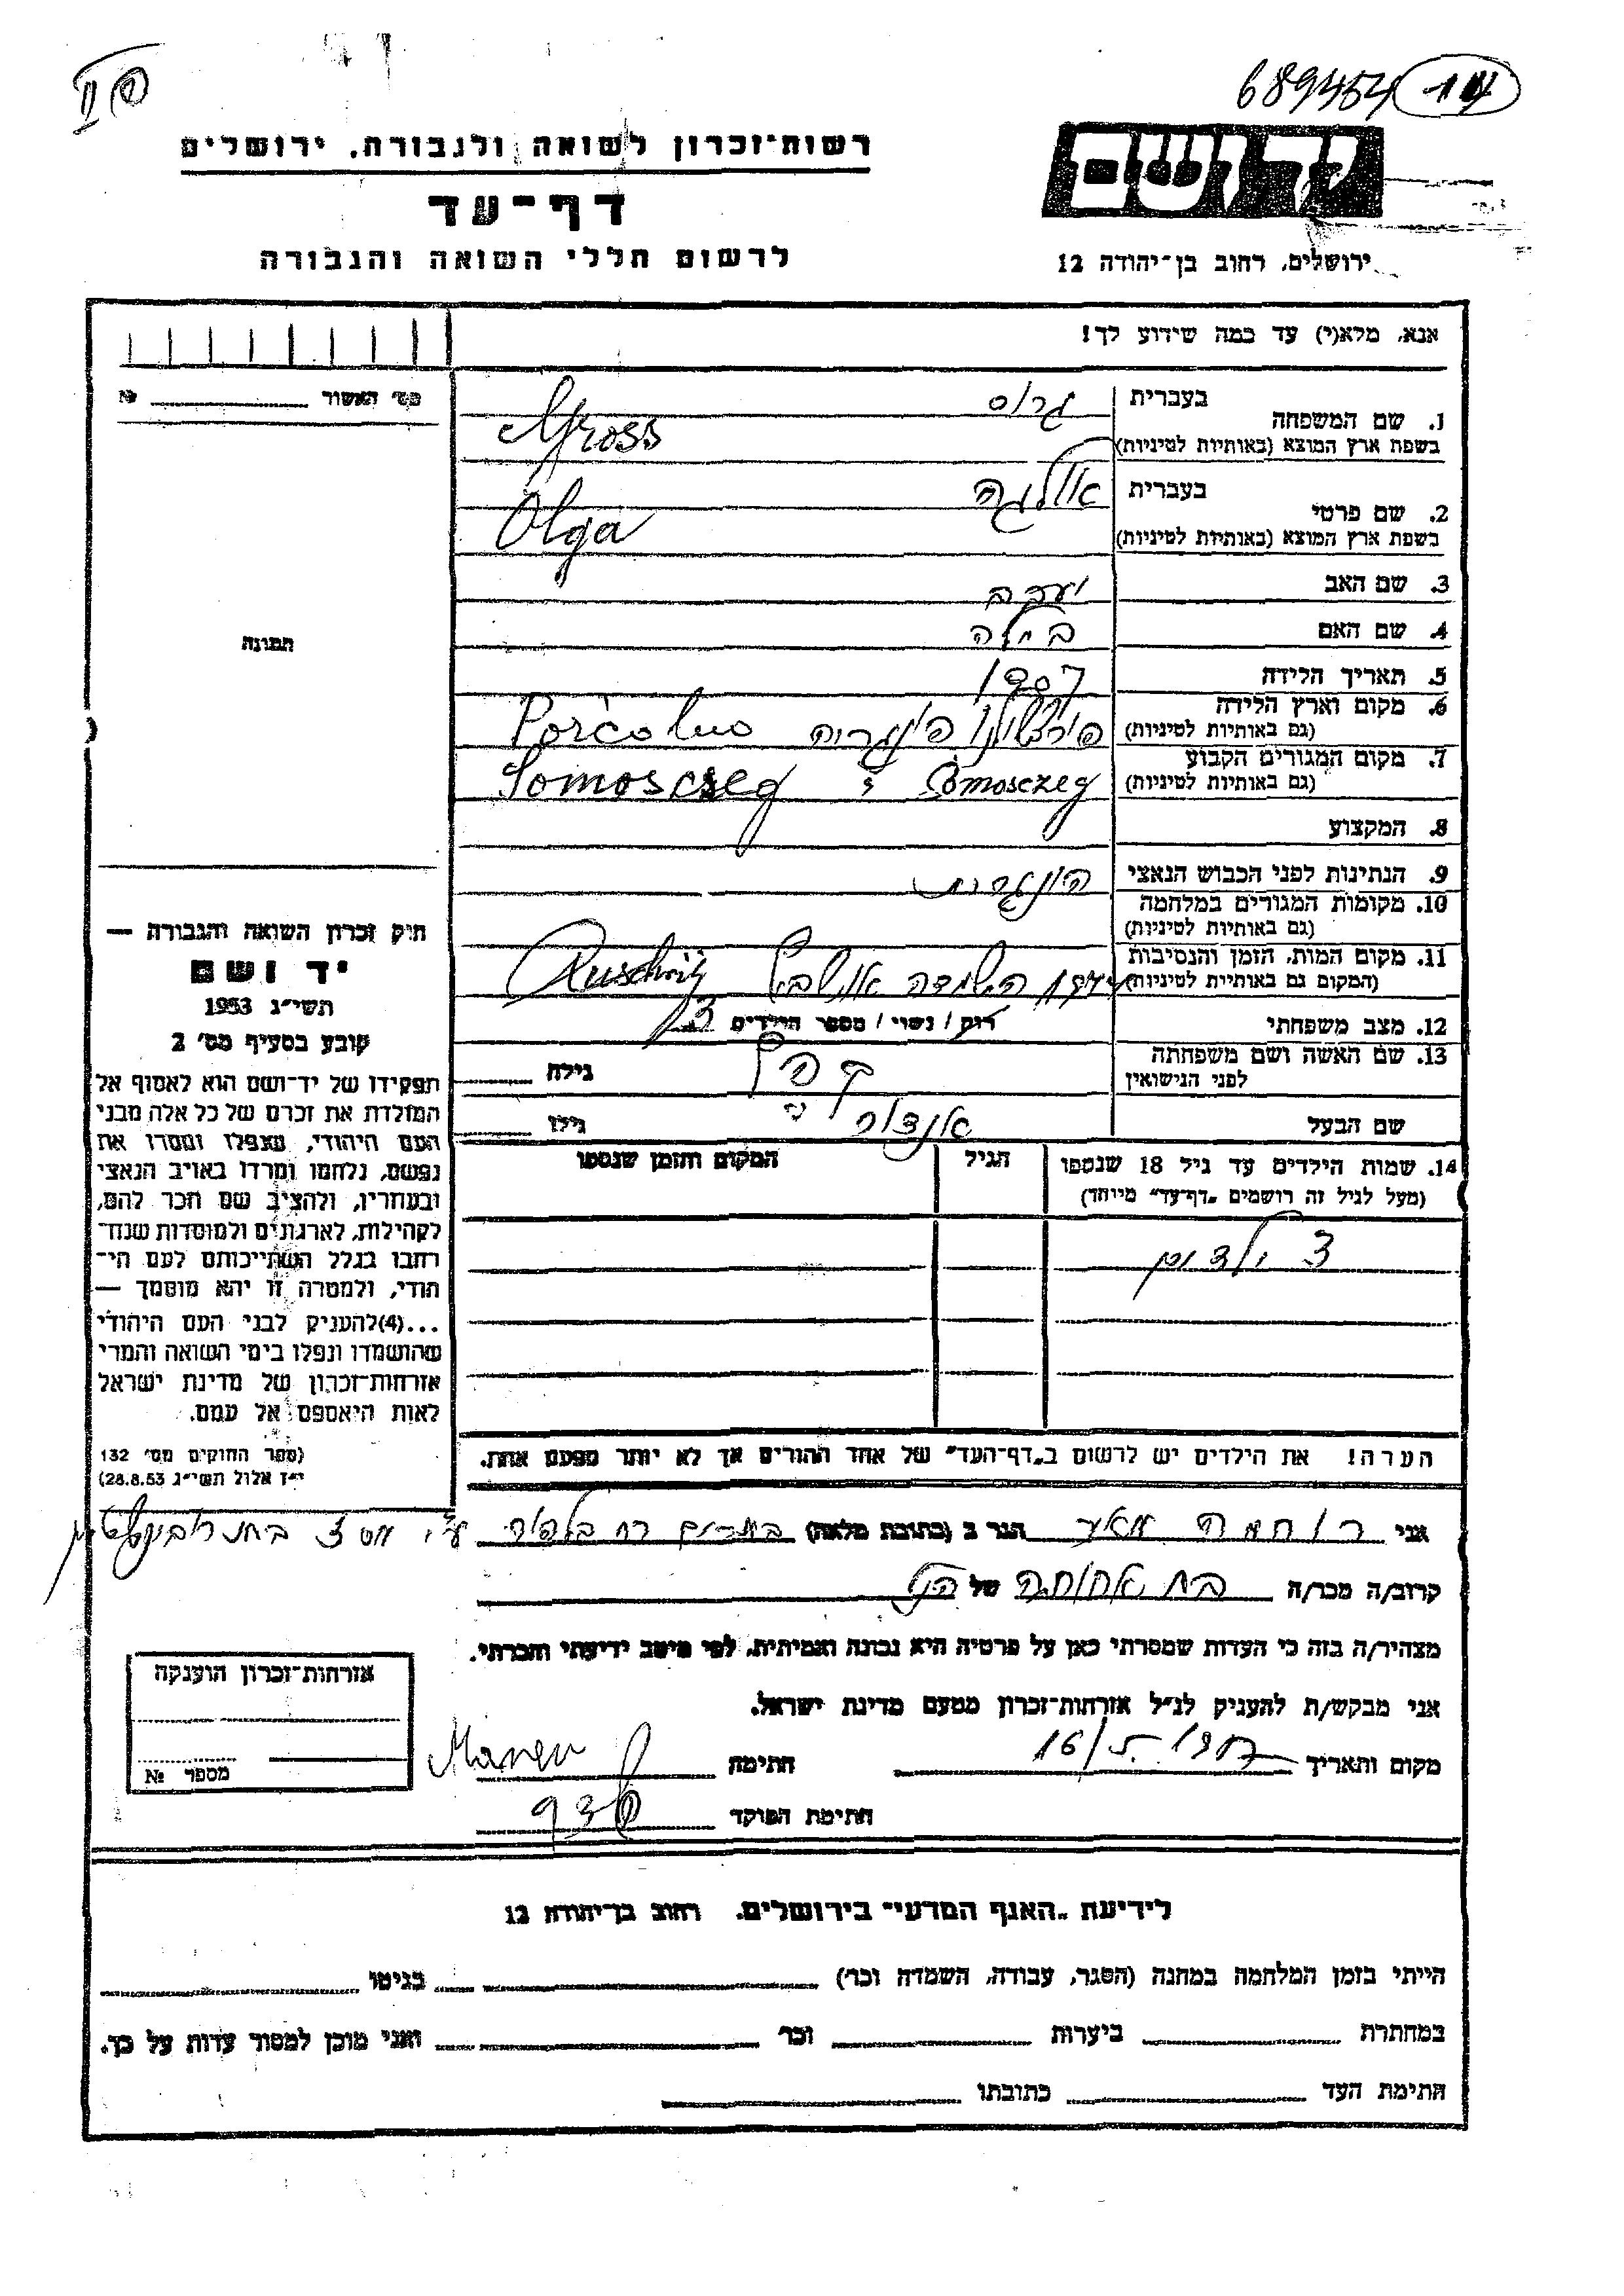 689454 14
רשות-זכרון לשואה ולגבורה, ירושלים
דף-עד
לרשום חללי השואה והגבורה
יד ושם
ירושלים, רחוב בן-יהודה 12
אנא, מלא(י) עד כמה שידוע לך!
מס' האשור № 
1. שם המשפחה בעברית גרוס
בשפת ארץ המוצא (באותיות לטיניות) Gross
2. שם פרטי בעברית אולגה
בשפת ארץ המוצא (באותיות לטיניות) Olga
3. שם האב יעקב
4. שם האם בילה
5. תאריך הלידה 1907
6. מקום וארץ הלידה
(גם באותיות לטיניות) הונגריה
7. מקום המגורים הקבוע
(גם באותיות לטיניות)
8. המקצוע
9. הנתינות לפני הכבוש הנאצי הונגרית
10. מקומות המגורים במלחמה
(גם באותיות לטיניות)
11. מקום המות, הזמן והנסיבות
(המקום גם באותיות לטיניות) השמדה אושביץ Auschwitz
12. מצב משפחתי רוק / נשוי / מספר הילדים 3
13. שם האשה ושם משפחתה
לפני הנישואין גילה
שם הבעל גילו
14. שמות הילדים עד גיל 18 שנספו הגיל המקום והזמן שנספו
(מעל לגיל זה רושמים "דף-עד" מיוחד)
3 ילדים
הערה! את הילדים יש לרשום ב"דף-העד" של אחד ההורים אך לא יותר מפעם אחת.
תמונה
חוק זכרון השואה והגבורה —
יד ושם
תשי"ג 1953
קובע בסעיף מס' 2
תפקידו של יד-ושם הוא לאסוף אל
המולדת את זכרם של כל אלה מבני
העם היהודי, שנפלו ומסרו את
נפשם, נלחמו ומרדו באויב הנאצי
ובעוזריו, ולהציב שם וזכר להם,
לקהילות, לארגונים ולמוסדות שנח-
רבו בגלל השתייכותם לעם הי-
הודי, ולמטרה זו יהא מוסמך —
...(4) להעניק לבני העם היהודי
שהושמדו ונפלו בימי השואה והמרי
אזרחות-זכרון של מדינת ישראל
לאות היאספם אל עמם.
(ספר החוקים מס' 132
י"ז אלול תשי"ג 28.8.53)
אני רוחמה מאיר הגר ב (כתובת מלאה)
קרוב/ה מכר/ה בת אחותה של הנ"ל
מצהיר/ה בזה כי העדות שמסרתי כאן על פרטיה היא נכונה ואמיתית, לפי מיטב ידיעתי והכרתי.
אני מבקש/ת להעניק לנ"ל אזרחות-זכרון מטעם מדינת ישראל.
מקום ותאריך 16/5 חתימה
חתימת הפוקד
אזרחות-זכרון הוענקה
מספר №
לידיעת "האגף המדעי" בירושלים, רחוב בן-יהודה 12
הייתי בזמן המלחמה במחנה (הסגר, עבודה, השמדה וכו') בגיטו
במחתרת ביערות וכו' ואני מוכן למסור עדות על כך.
חתימת העד כתובתו